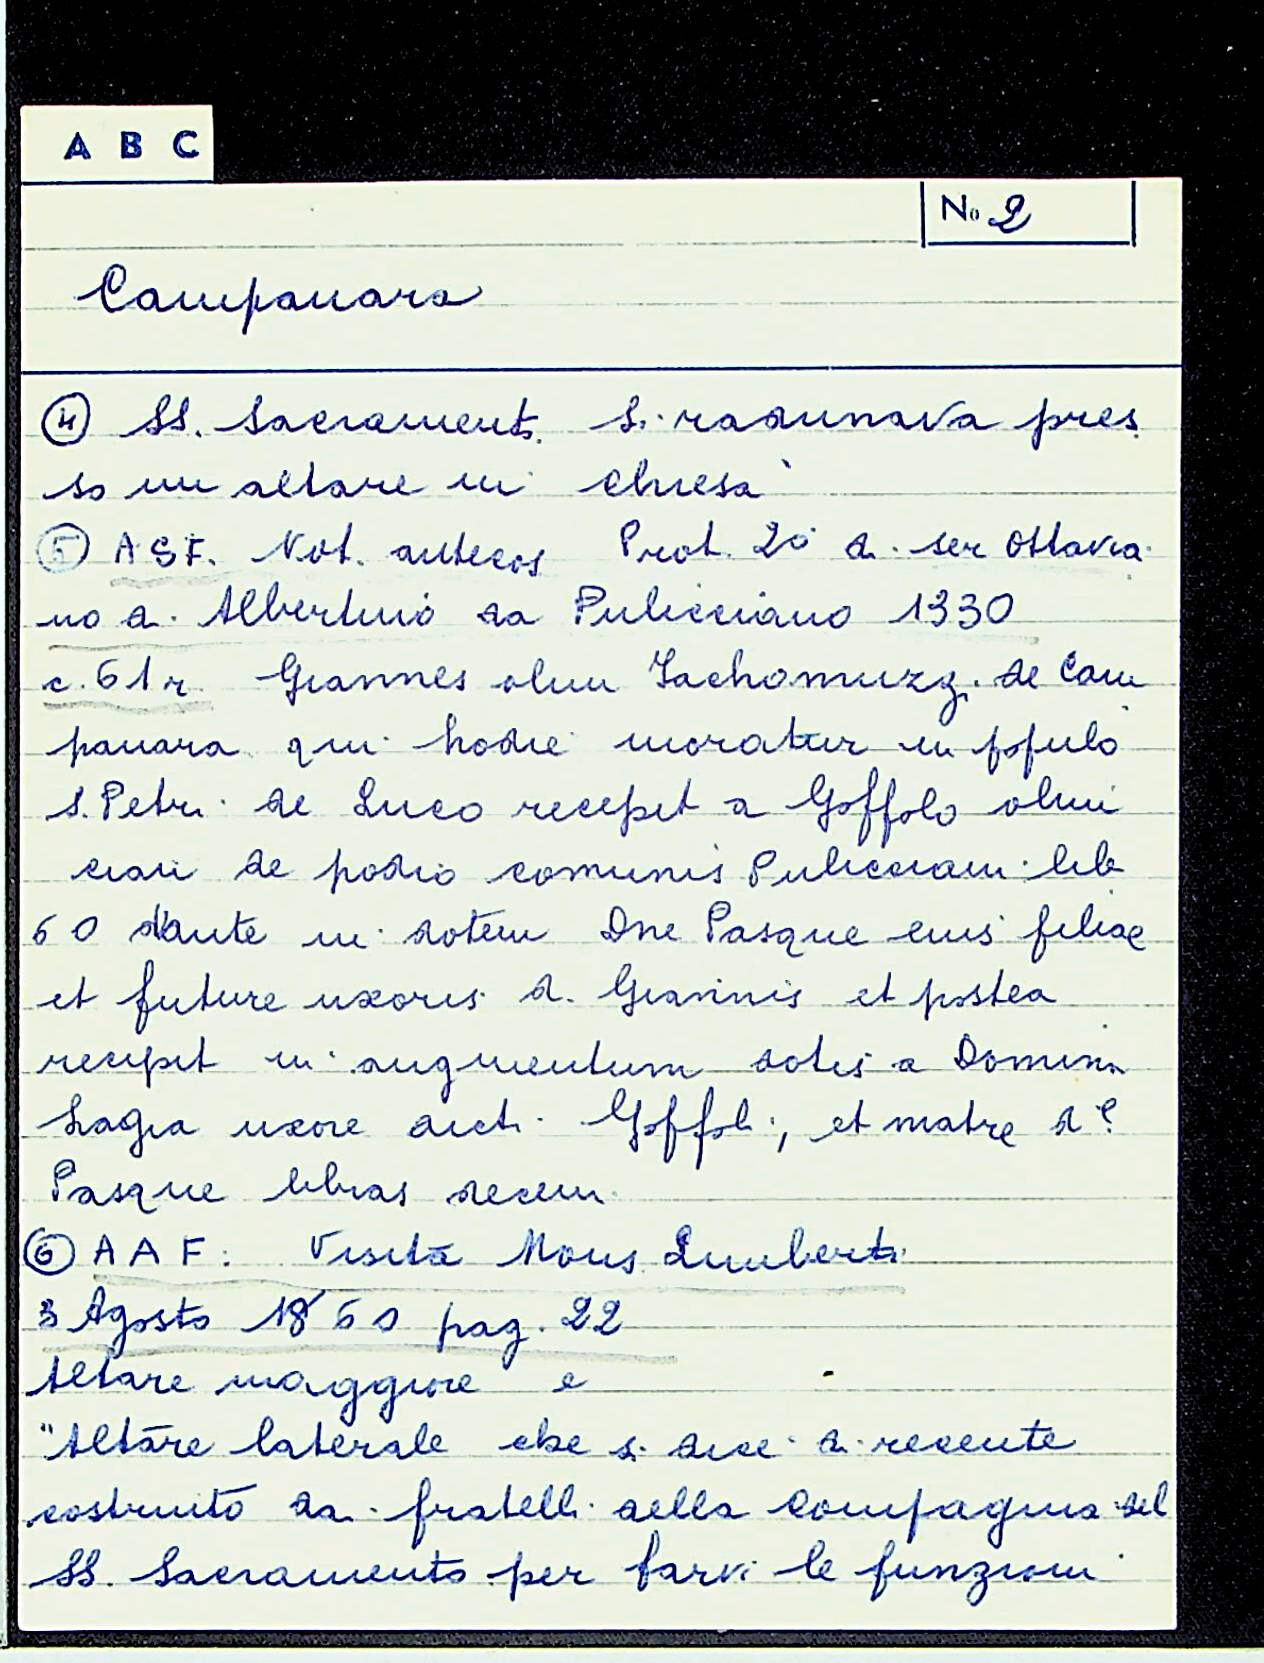 A B C
No 2
Campanara
④ SS. Sacramento si radunava pres
so un altare in chiesa
⑤ ASF. Not. antecos Prot. 2° di ser Ottavia
no di Albertino da Pulicciano 1330
c. 61 r. Giannes olim Jachomuzzi de Cam
panara qui hodie moratur in populo
S. Petri de Luco recepit a Goffolo olim
ciari de podio comunis Pulicciani lib
60 dante in dotem Dne Pasque eius filiae
et future uxoris d. Giannis et postea
recepit in augmentum dotis a Domina
hagia uxore dicti Goffoli, et matre d.e
Pasque libras decem
⑥ AAF: Visita Mons Limberti
3 Agosto 1860 pag. 22
Altare maggiore e
"Altare laterale che si dice di recente
costruito dai fratelli della Compagnia del
SS. Sacramento per farvi le funzioni